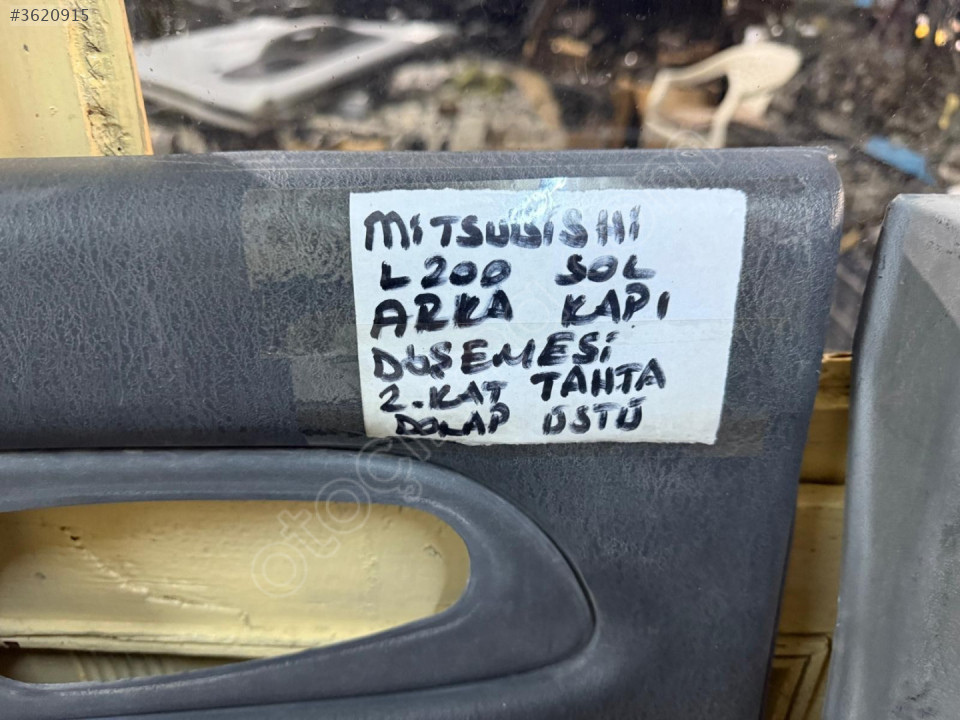 #3620915
MITSUBISHI
L200 SOL
ARKA KAPI
DÖŞEMESİ
2.KAT TAHTA
DOLAP ÜSTÜ